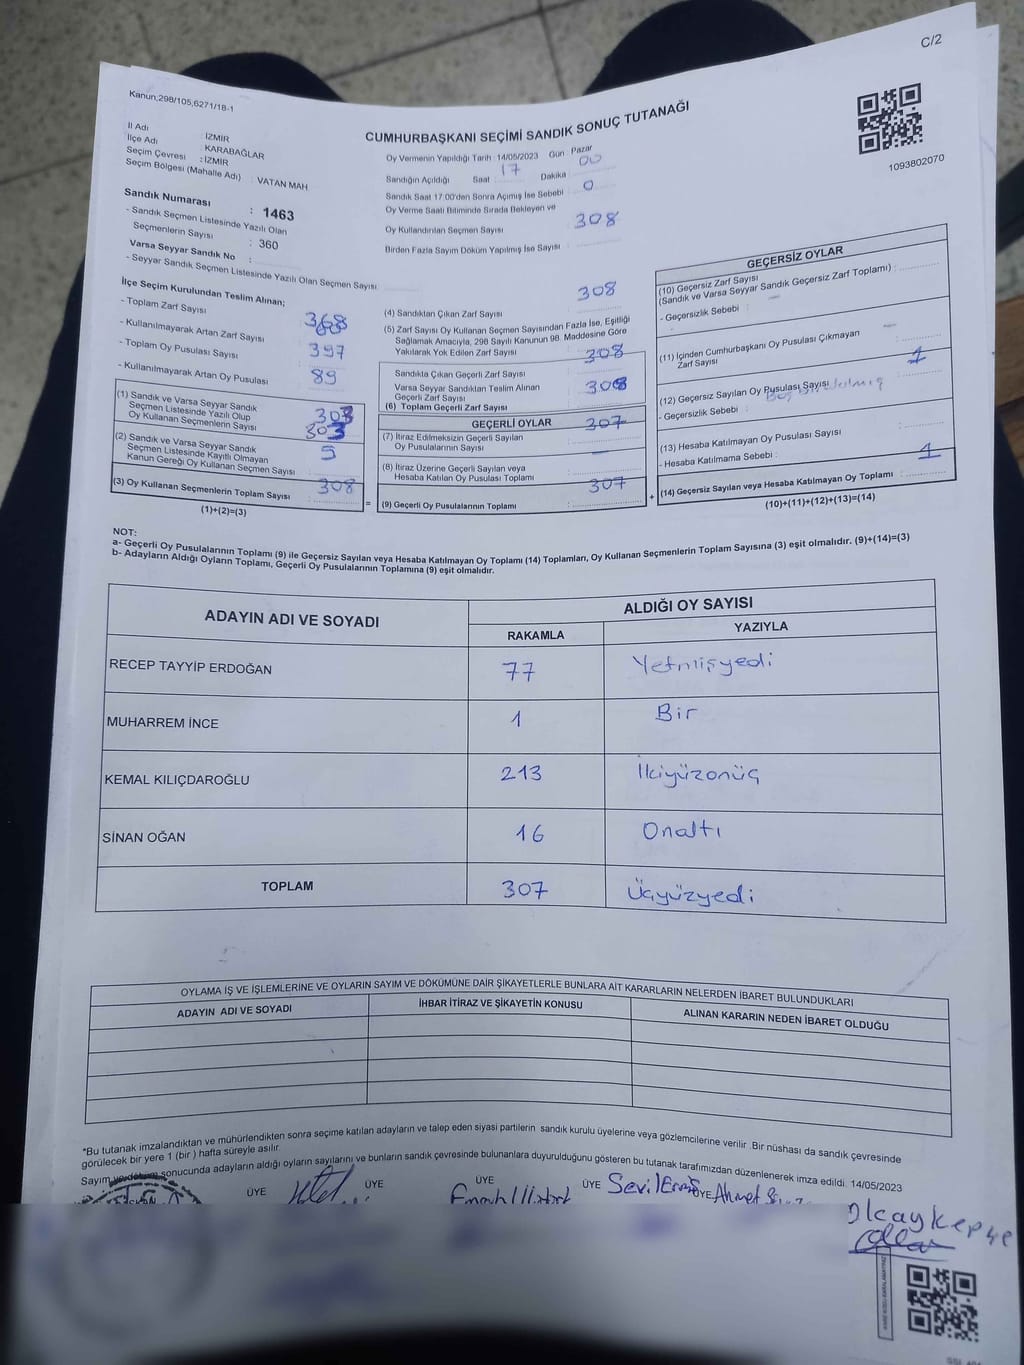 C/2
Kanun;298/105,6271/18-1
CUMHURBAŞKANI SEÇİMİ SANDIK SONUÇ TUTANAĞI
1093802070
İl Adı : İZMİR
İlçe Adı : KARABAĞLAR
Seçim Çevresi : İZMİR
Seçim Bölgesi (Mahalle Adı) : VATAN MAH
Sandık Numarası : 1463
- Sandık Seçmen Listesinde Yazılı Olan
Seçmenlerin Sayısı : 360
Varsa Seyyar Sandık No :
- Seyyar Sandık Seçmen Listesinde Yazılı Olan Seçmen Sayısı
Oy Vermenin Yapıldığı Tarih :14/05/2023 Gün Pazar
Sandığın Açıldığı Saat 17 Dakika 00
Sandık Saat 17:00'den Sonra Açımış İse Sebebi
Oy Verme Saati Bitiminde Sırada Bekleyen ve 0
Oy Kullandırılan Seçmen Sayısı 308
Birden Fazla Sayım Döküm Yapılmış İse Sayısı :
İlçe Seçim Kurulundan Teslim Alınan;
- Toplam Zarf Sayısı
- Kullanılmayarak Artan Zarf Sayısı
- Toplam Oy Pusulası Sayısı : 397
- Kullanılmayarak Artan Oy Pusulası : 89
(1) Sandık ve Varsa Seyyar Sandık
Seçmen Listesinde Yazılı Olup
Oy Kullanan Seçmenlerin Sayısı 303
(2) Sandık ve Varsa Seyyar Sandık
Seçmen Listesinde Kayıtlı Olmayan
Kanun Gereği Oy Kullanan Seçmen Sayısı : 5
(3) Oy Kullanan Seçmenlerin Toplam Sayısı : 308
(1)+(2)=(3)
=
(4) Sandıktan Çıkan Zarf Sayısı 308
(5) Zarf Sayısı Oy Kullanan Seçmen Sayısından Fazla İse, Eşitliği
Sağlamak Amacıyla, 298 Sayılı Kanunun 98. Maddesine Göre
Yakılarak Yok Edilen Zarf Sayısı
Sandıkta Çıkan Geçerli Zarf Sayısı : 308
Varsa Seyyar Sandıktan Teslim Alınan
Geçerli Zarf Sayısı
(6) Toplam Geçerli Zarf Sayısı : 308
GEÇERLİ OYLAR
(7) İtiraz Edilmeksizin Geçerli Sayılan
Oy Pusulalarının Sayısı : 307
(8) İtiraz Üzerine Geçerli Sayılan veya
Hesaba Katılan Oy Pusulası Toplamı : —
(9) Geçerli Oy Pusulalarının Toplamı : 307
+
GEÇERSİZ OYLAR
(10) Geçersiz Zarf Sayısı
(Sandık ve Varsa Seyyar Sandık Geçersiz Zarf Toplamı) :
- Geçersizlik Sebebi :
(11) İçinden Cumhurbaşkanı Oy Pusulası Çıkmayan
Zarf Sayısı
(12) Geçersiz Sayılan Oy Pusulası Sayısı : 1
- Geçersizlik Sebebi :
(13) Hesaba Katılmayan Oy Pusulası Sayısı
- Hesaba Katılmama Sebebi :
(14) Geçersiz Sayılan veya Hesaba Katılmayan Oy Toplamı : 1
(10)+(11)+(12)+(13)=(14)
NOT:
a- Geçerli Oy Pusulalarının Toplamı (9) ile Geçersiz Sayılan veya Hesaba Katılmayan Oy Toplamı (14) Toplamları, Oy Kullanan Seçmenlerin Toplam Sayısına (3) eşit olmalıdır. (9)+(14)=(3)
b- Adayların Aldığı Oyların Toplamı, Geçerli Oy Pusulalarının Toplamına (9) eşit olmalıdır.
ADAYIN ADI VE SOYADI ALDIĞI OY SAYISI
RAKAMLA YAZIYLA
RECEP TAYYİP ERDOĞAN 77 Yetmişyedi
MUHARREM İNCE 1 Bir
KEMAL KILIÇDAROĞLU 213 İkiyüzonüç
SİNAN OĞAN 16 Onaltı
TOPLAM 307 Üçyüzyedi
OYLAMA İŞ VE İŞLEMLERİNE VE OYLARIN SAYIM VE DÖKÜMÜNE DAİR ŞİKAYETLERLE BUNLARA AİT KARARLARIN NELERDEN İBARET BULUNDUKLARI
ADAYIN ADI VE SOYADI İHBAR İTİRAZ VE ŞİKAYETİN KONUSU ALINAN KARARIN NEDEN İBARET OLDUĞU
*Bu tutanak imzalandıktan ve mühürlendikten sonra seçime katılan adayların ve talep eden siyasi partilerin sandık kurulu üyelerine veya gözlemcilerine verilir .Bir nüshası da sandık çevresinde
görülecek bir yere 1 (bir ) hafta süreyle asılır.
Sayım ve döküm sonucunda adayların aldığı oyların sayılarını ve bunların sandık çevresinde bulunanlara duyurulduğunu gösteren bu tutanak tarafımızdan düzenlenerek imza edildi. 14/05/2023
ÜYE ÜYE ÜYE ÜYE Sevil ÜYE Ahmet
Olcay